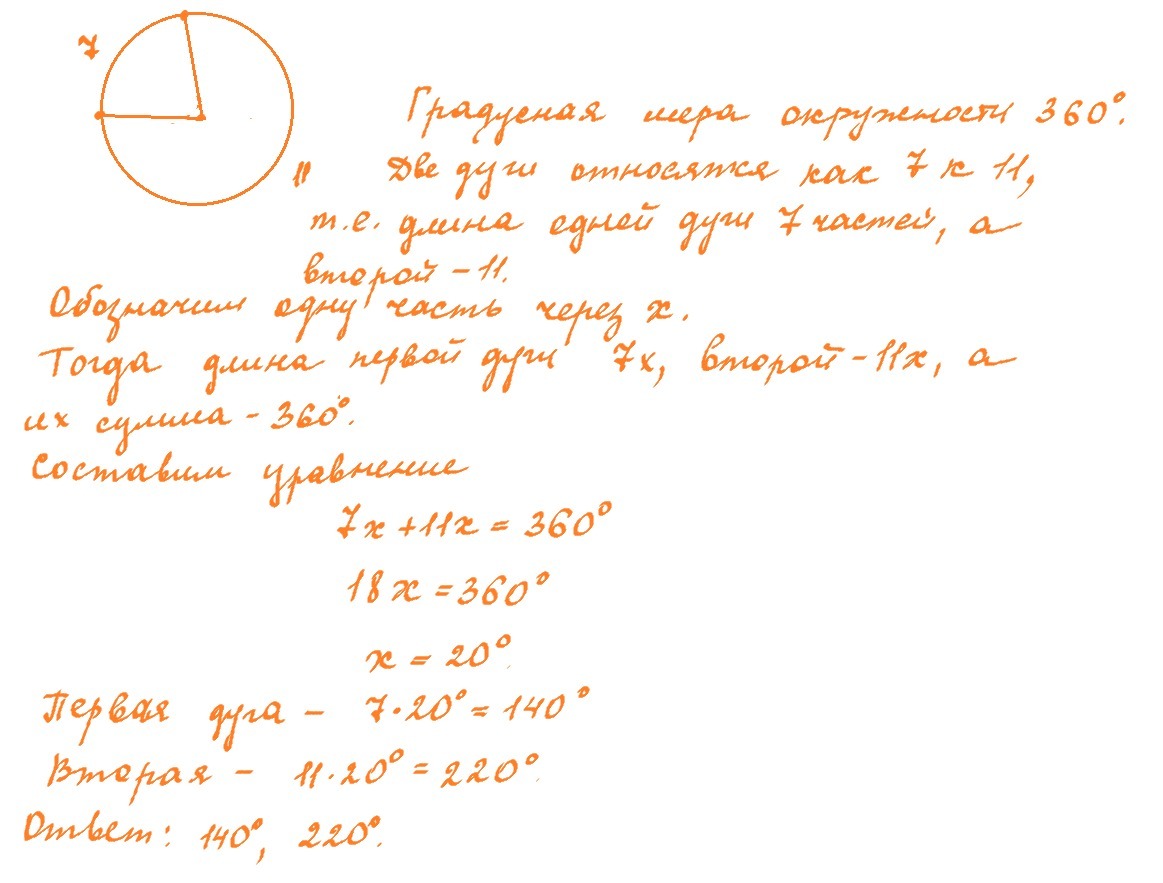 7
Градусная мера окружности 360°.
11 Две дуги относятся как 7 к 11,
т.е. длина одной дуги 7 частей, а
второй – 11.
Обозначим одну часть через x.
Тогда длина первой дуги 7x, второй – 11x, а
их сумма – 360°.
Составим уравнение
7x + 11x = 360°
18x = 360°
x = 20°.
Первая дуга – 7·20° = 140°
Вторая – 11·20° = 220°.
Ответ: 140°, 220°.